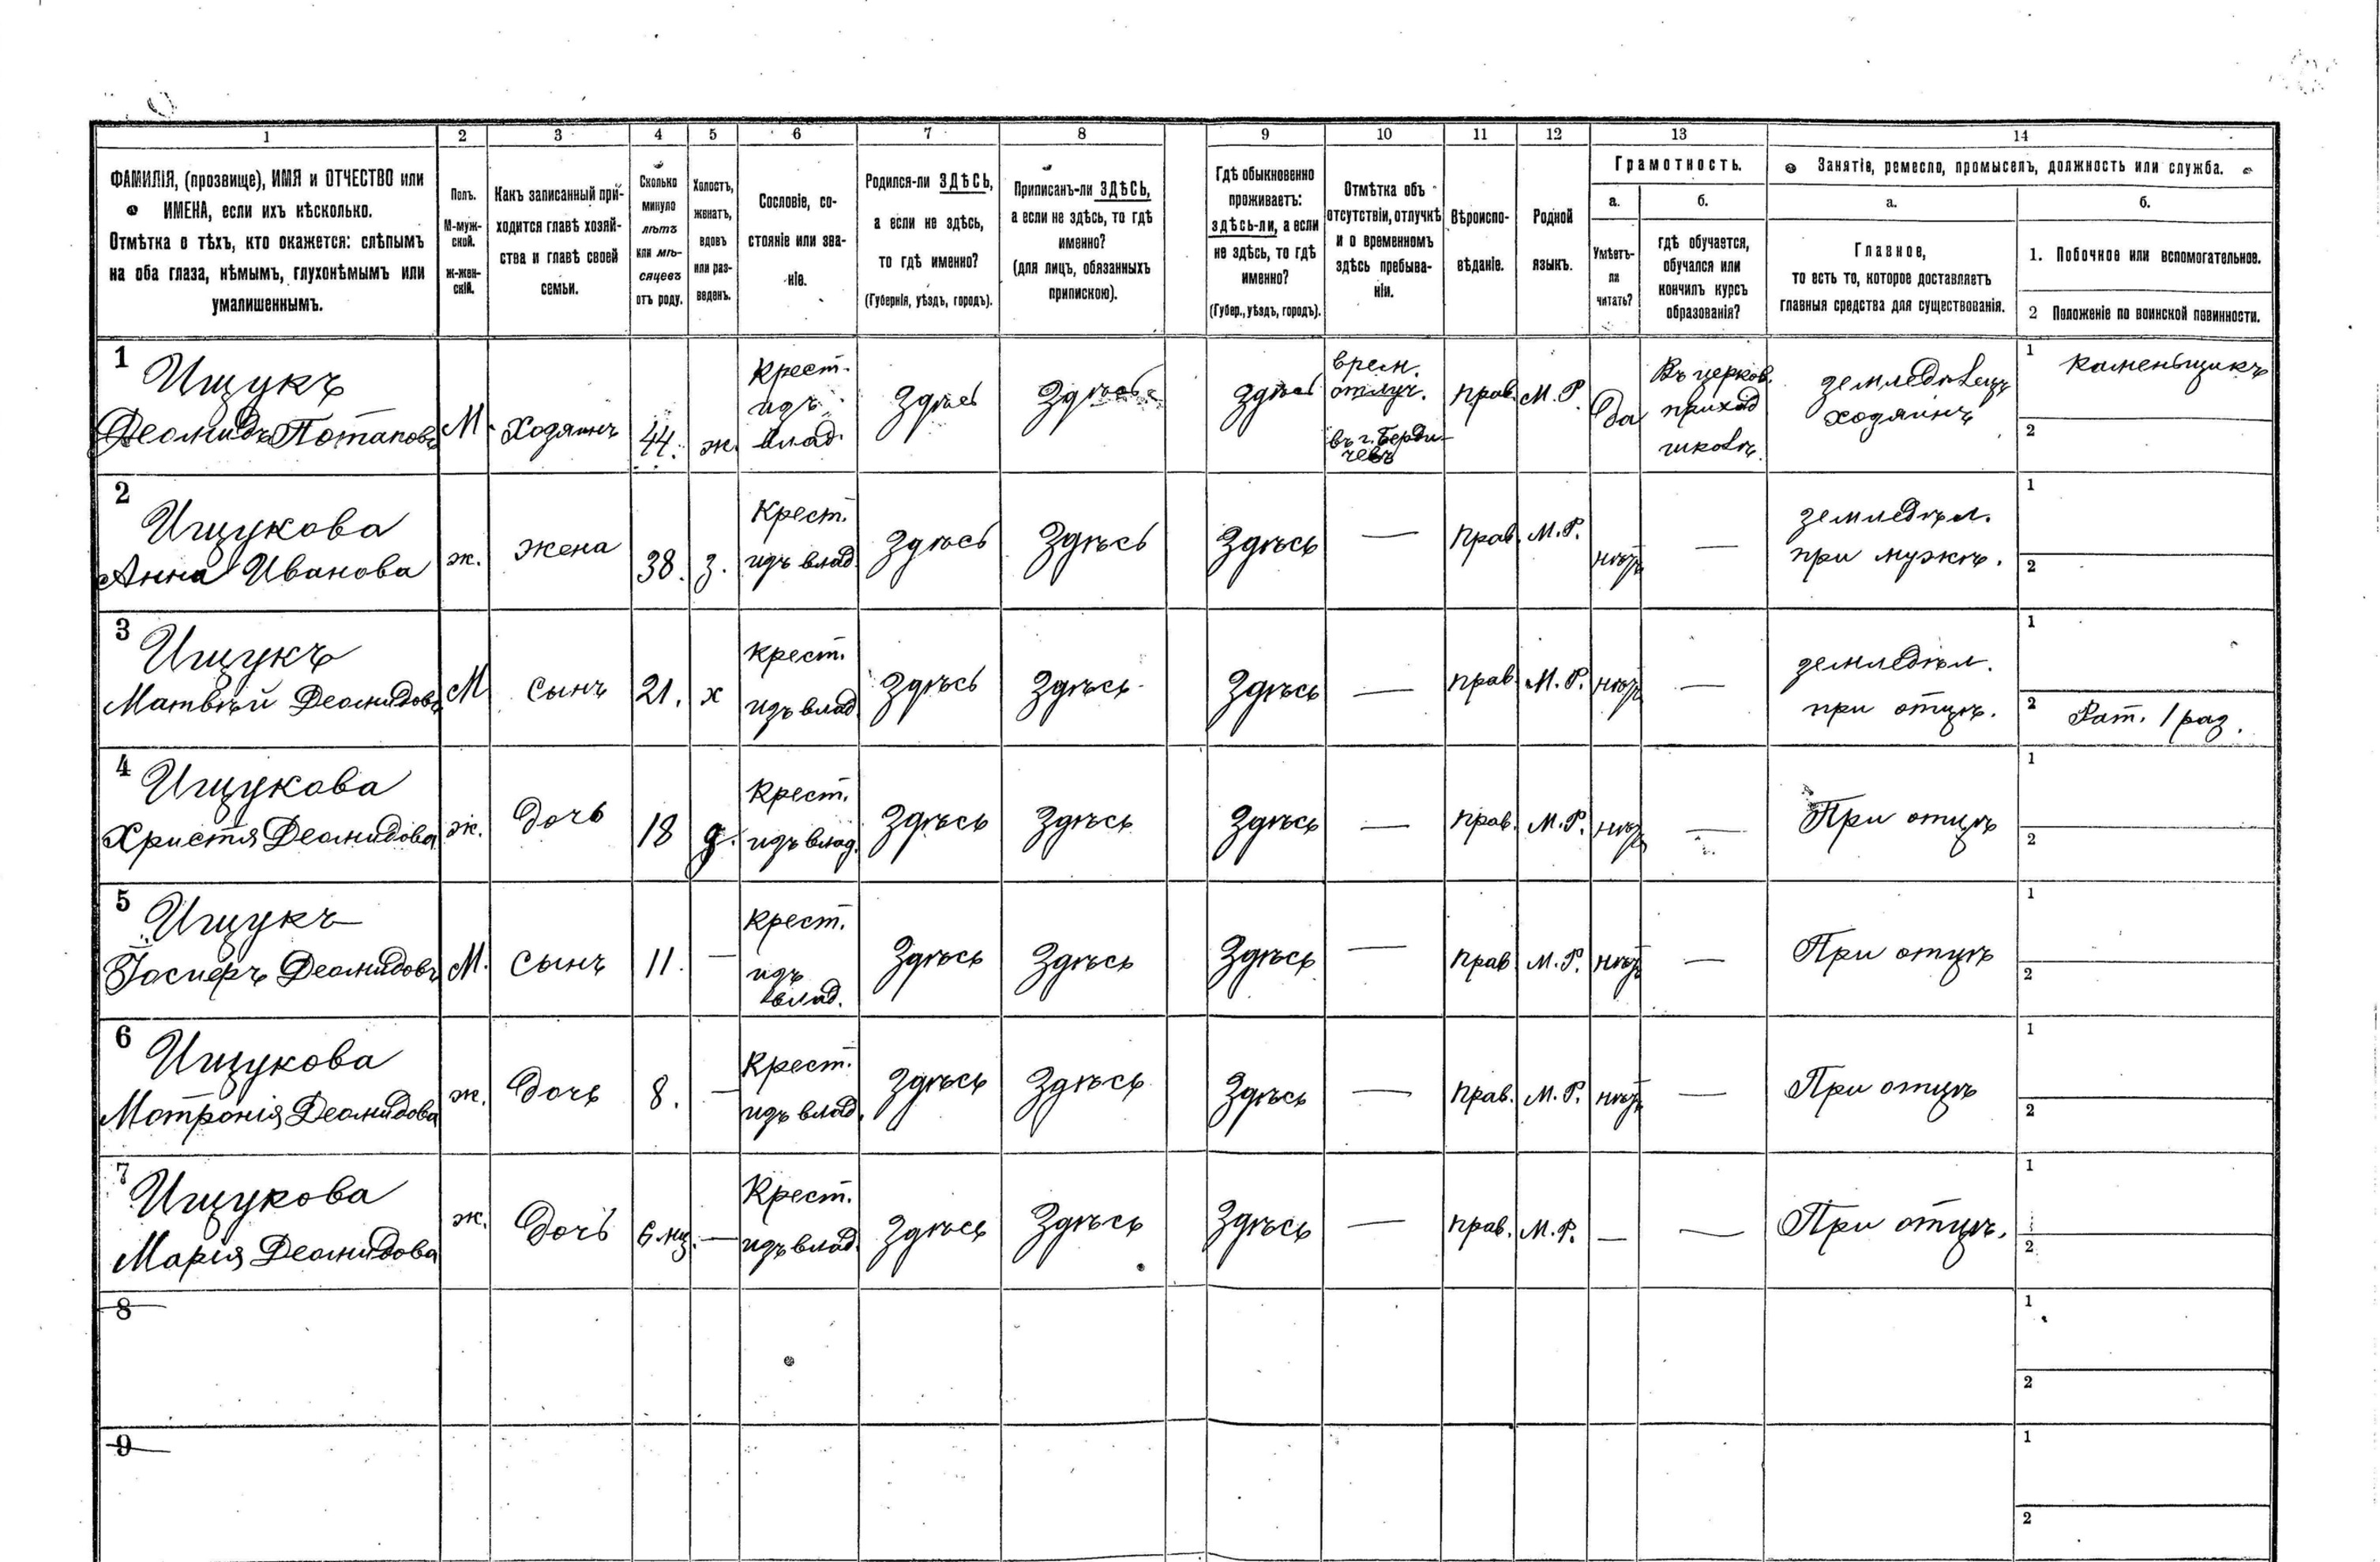 1 2 3 4 5 6 7 8 9 10 11 12 13 14
ФАМИЛІЯ, (прозвище), ИМЯ и ОТЧЕСТВО или
ИМЕНА, если ихъ нѣсколько.
Отмѣтка о тѣхъ, кто окажется: слѣпымъ
на оба глаза, нѣмымъ, глухонѣмымъ или
умалишеннымъ.
Полъ.
М-муж-
ской.
ж-жен-
скій.
Какъ записанный при-
ходится главѣ хозяй-
ства и главѣ своей
семьи.
Сколько
минуло
лѣтъ
или мѣ-
сяцевъ
отъ роду.
Холостъ,
женатъ,
вдовъ
или раз-
веденъ.
Сословіе, со-
стояніе или зва-
ніе.
Родился-ли ЗДѢСЬ,
а если не здѣсь,
то гдѣ именно?
(Губернія, уѣздъ, городъ).
Приписанъ-ли ЗДѢСЬ,
а если не здѣсь, то гдѣ
именно?
(для лицъ, обязанныхъ
припискою).
Гдѣ обыкновенно
проживаетъ:
здѣсь-ли, а если
не здѣсь, то гдѣ
именно?
(Губер., уѣздъ, городъ).
Отмѣтка объ
отсутствіи, отлучкѣ
и о временномъ
здѣсь пребыва-
ніи.
Вѣроиспо-
вѣданіе.
Родной
языкъ.
Грамотность.
а.
Умѣетъ-
ли
читать?
б.
гдѣ обучается,
обучался или
кончилъ курсъ
образованія?
Занятіе, ремесло, промыселъ, должность или служба.
а.
Главное,
то есть то, которое доставляетъ
главныя средства для существованія.
б.
1. Побочное или вспомогательное.
2 Положеніе по воинской повинности.
1
Ищукъ
Деомидъ Потаповъ
М.
Хозяинъ
44.
ж.
Крест.
изъ
влад.
Здѣсь
Здѣсь
Здѣсь
врем.
отлуч.
въ г. Берди-
чевъ
прав.
М. Р.
Да
Въ церков.
приход
школѣ.
земледѣлецъ
хозяинъ
1 каменьщикъ
2
2
Ищукова
Анна Иванова
ж.
жена
38.
з.
Крест.
изъ влад.
Здѣсь
Здѣсь
Здѣсь
—
прав.
М. Р.
нѣтъ
—
земледѣл.
при мужѣ.
1
2
3
Ищукъ
Матвѣй Деомидовъ
М
сынъ
21.
х
крест.
изъ влад.
Здѣсь
Здѣсь
Здѣсь
—
прав.
М. Р.
нѣтъ
—
земледѣл.
при отцѣ.
1
2 Рат. 1 раз.
4
Ищукова
Христя Деомидова
ж.
Дочь
18
д.
Крест.
изъ влад.
Здѣсь
Здѣсь
Здѣсь
—
прав.
М. Р.
нѣтъ
—
При отцѣ
1
2
5
Ищукъ
Деомидовъ
М.
сынъ
11.
—
крест.
изъ
влад.
Здѣсь
Здѣсь
Здѣсь
—
прав.
М. Р.
нѣтъ
—
При отцѣ
1
2
6
Ищукова
Мотронія Деомидова
ж.
Дочь
8.
—
Крест.
изъ влад.
Здѣсь
Здѣсь
Здѣсь
—
прав.
М. Р.
нѣтъ
—
При отцѣ
1
2
7
Ищукова
Марія Деомидова
ж.
Дочь
6 мц.
—
Крест.
изъ влад.
Здѣсь
Здѣсь
Здѣсь
—
прав.
М. Р.
—
—
При отцѣ.
1
2
8
1
2
9
1
2